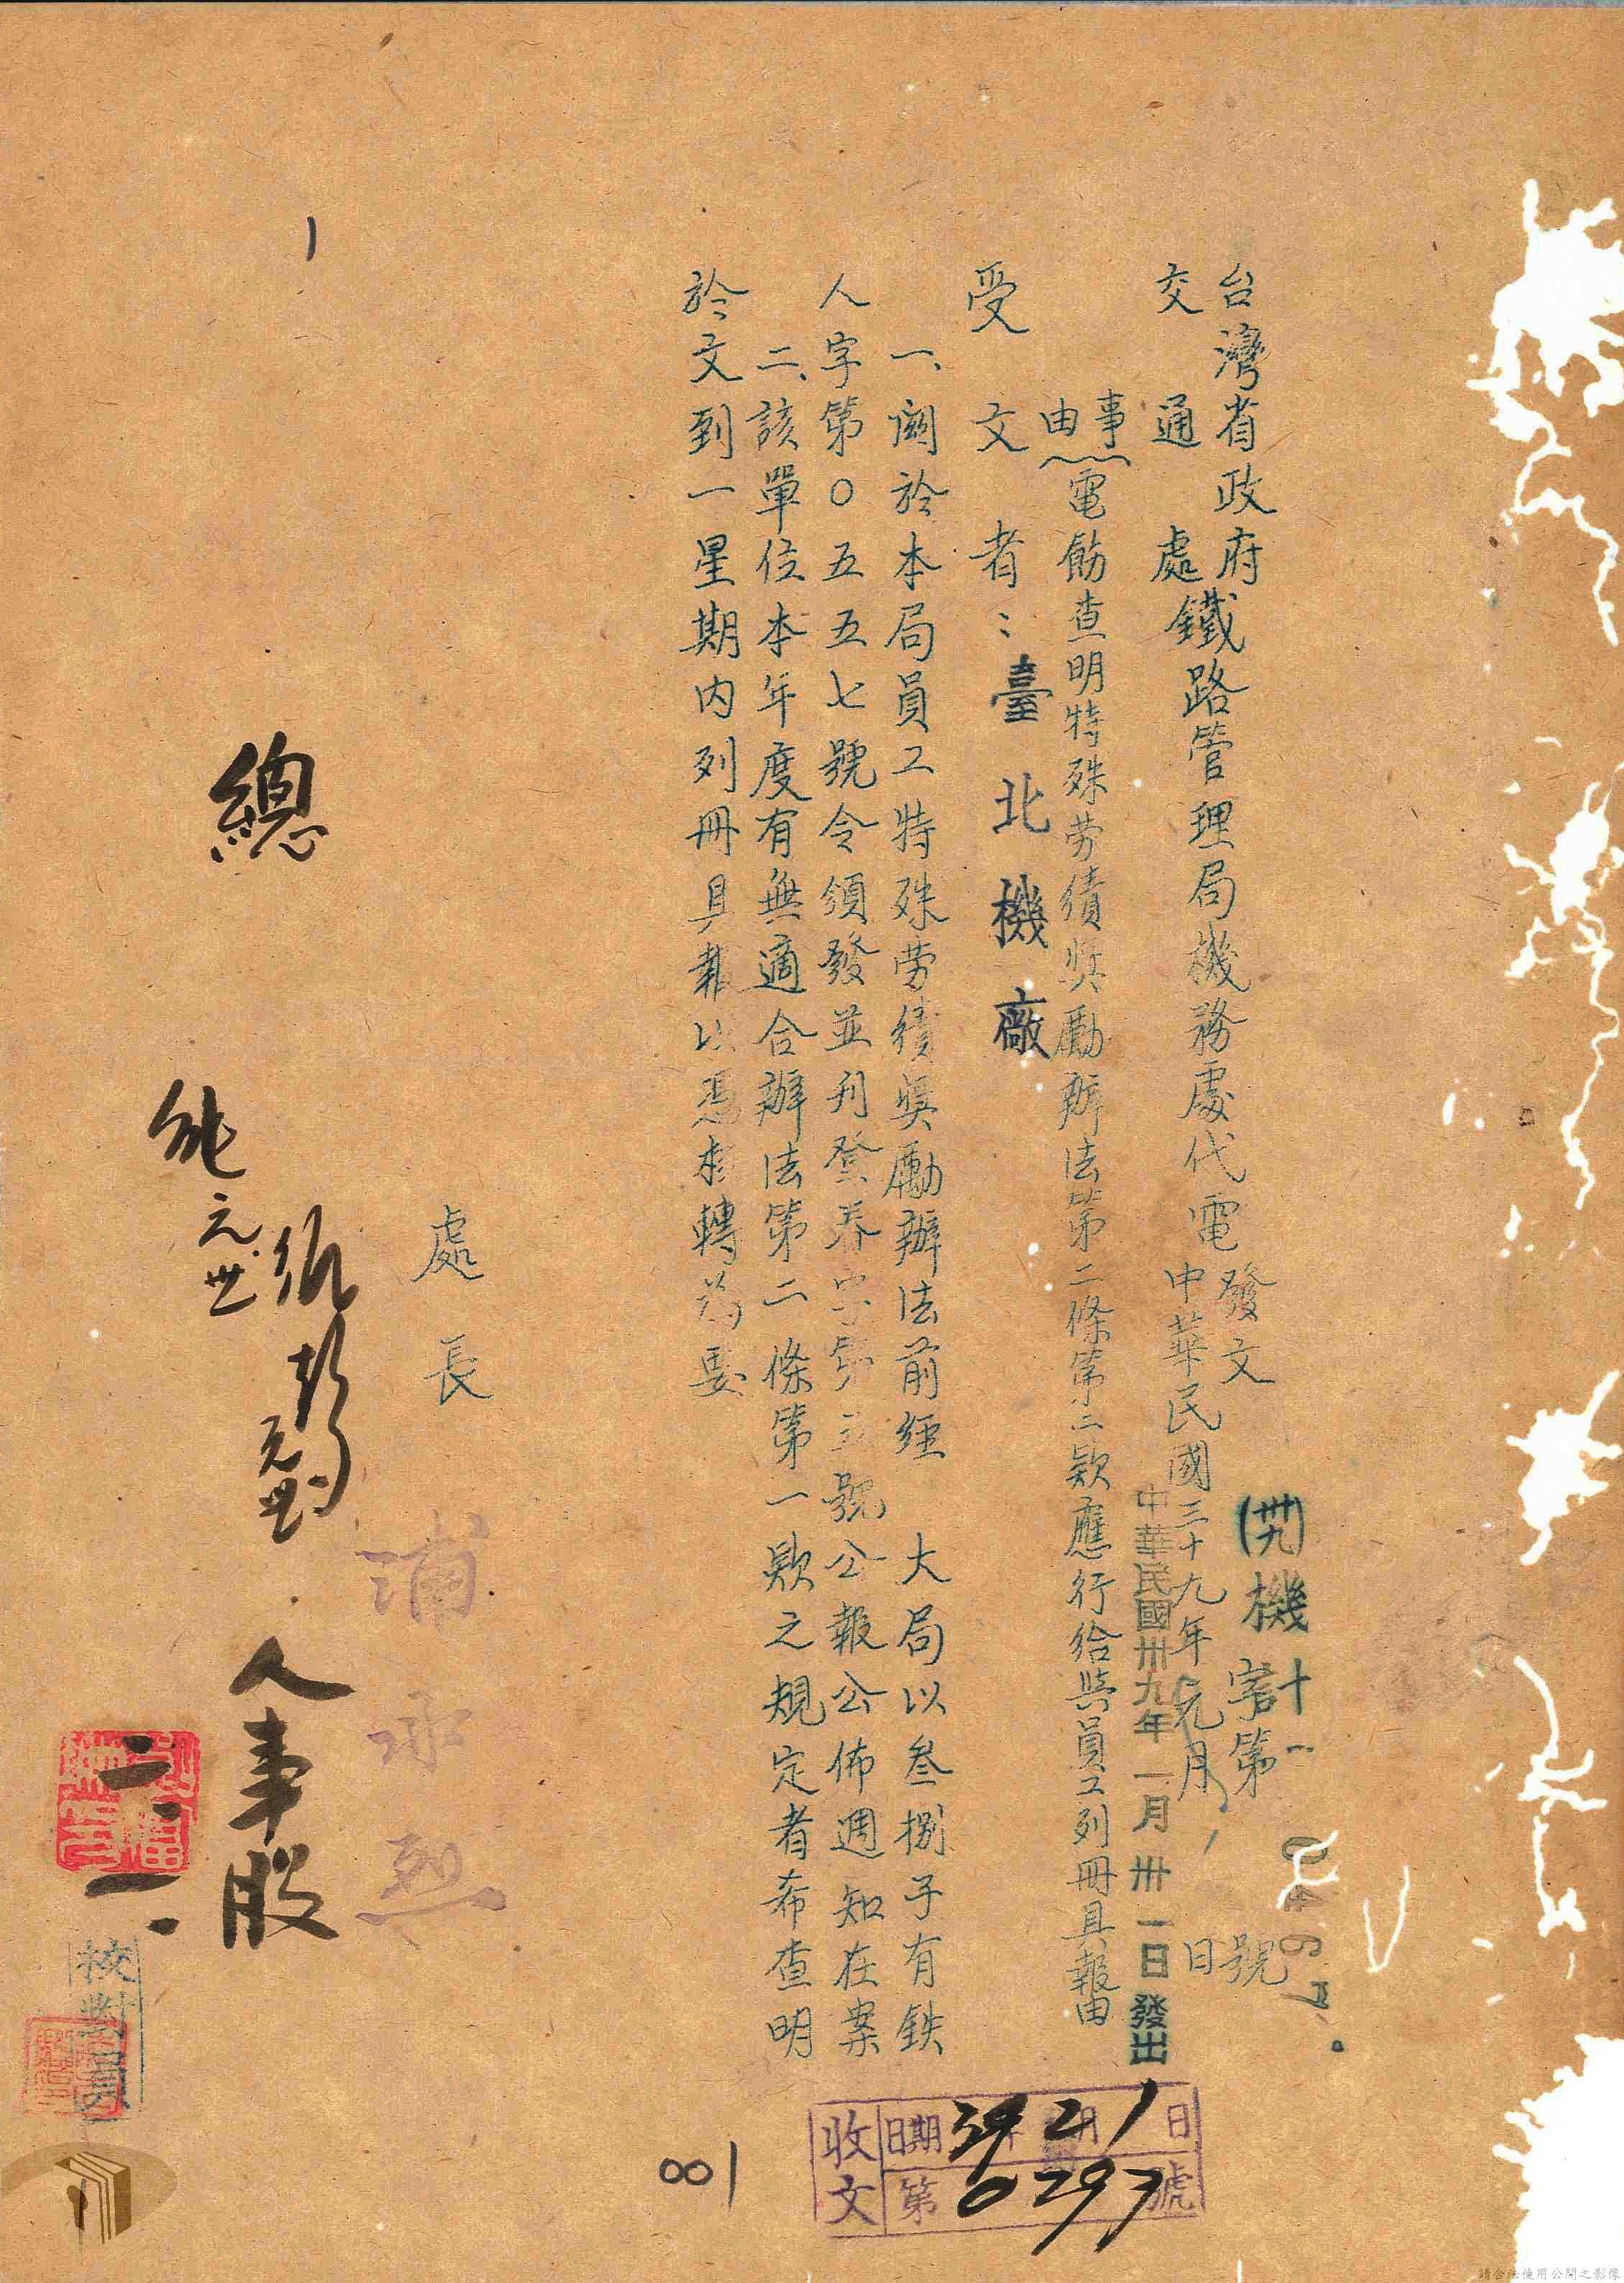 台灣省政府
交通處
鐵路管理局機務處代電
發文
(卅九)機十一
計
字第
號
中華民國三十九年元月
日
中華民國卅九年一月卅一日發出
事由
電飭查明特殊劳績獎勵辦法第二條第二欵應行给與員工列冊具報由
受文者：臺北機廠
一、關於本局員工特殊劳績獎勵辦法前經 大局以叁捌子有鉄
人字第〇五五七號令頒發並刊登春字第三號公報公佈週知在案
二、該單位本年度有無適合辦法第二條第一欵之規定者希查明
於文到一星期內列冊具報以憑核轉為要
處長
總
元世
人事股
二、一、
校對員
收文
日期 39年2月1日
第0297號
001
請合法使用公開之影像